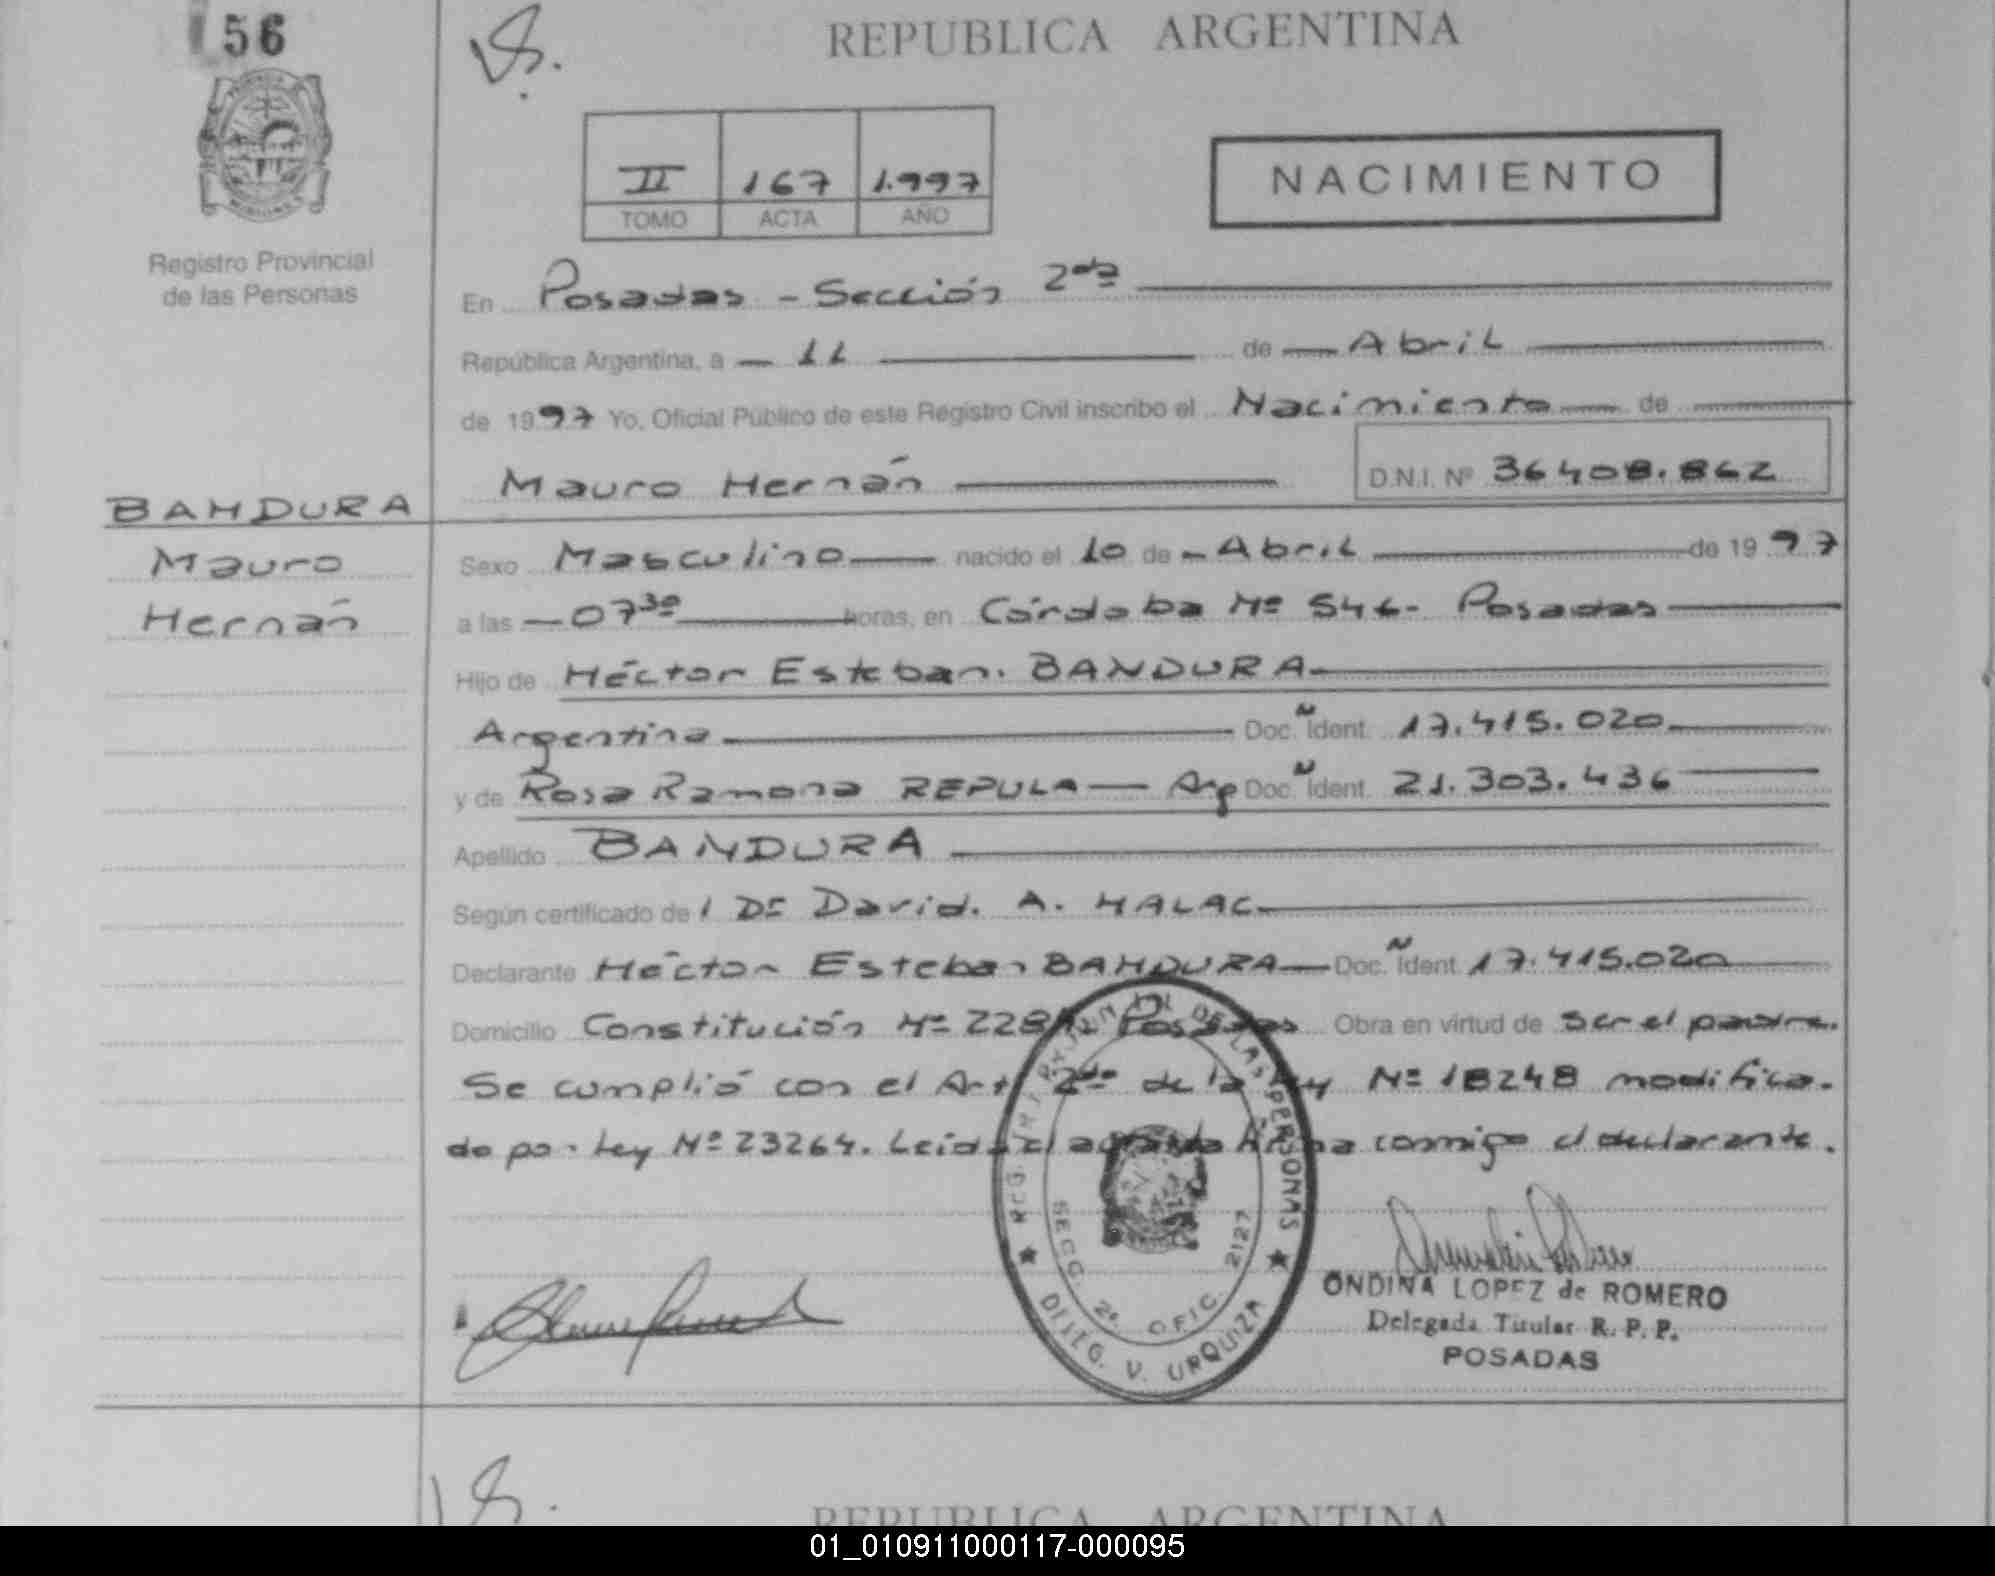 156
REPUBLICA ARGENTINA
II 167 1.997
TOMO ACTA AÑO
NACIMIENTO
Registro Provincial
de las Personas
En Posadas - Sección 2da
República Argentina, a 11 de Abril
de 1997 Yo, Oficial Público de este Registro Civil inscribo el Nacimiento de
Mauro Hernán D.N.I. Nº 36408.862
BANDURA
Mauro
Hernán
Sexo Masculino nacido el 10 de Abril de 1997
a las 07 30 horas, en Córdoba Nº 546- Posadas
Hijo de Héctor Esteban. BANDURA
Argentina Doc. Ident. 17.415.020
y de Rosa Ramona REPULA Arg Doc. Ident. 21.303.436
Apellido BANDURA
Según certificado de l Dr David. A. HALAC
Declarante Héctor Esteban BANDURA Doc. Ident. 17.415.020
Domicilio Constitución Nº Posadas Obra en virtud de ser el padre.
Se cumplió con el Art 2do de la Ley Nº 18248 modifica-
do por Ley Nº 23264. Leida el acta la firma conmigo el declarante.
REG. DE LAS PERSONAS
SECC. 2ª OFIC. 2127
V. URQUIZA
ONDINA LOPEZ de ROMERO
Delegada Titular R. P. P.
POSADAS
REPUBLICA ARGENTINA
01_010911000117-000095